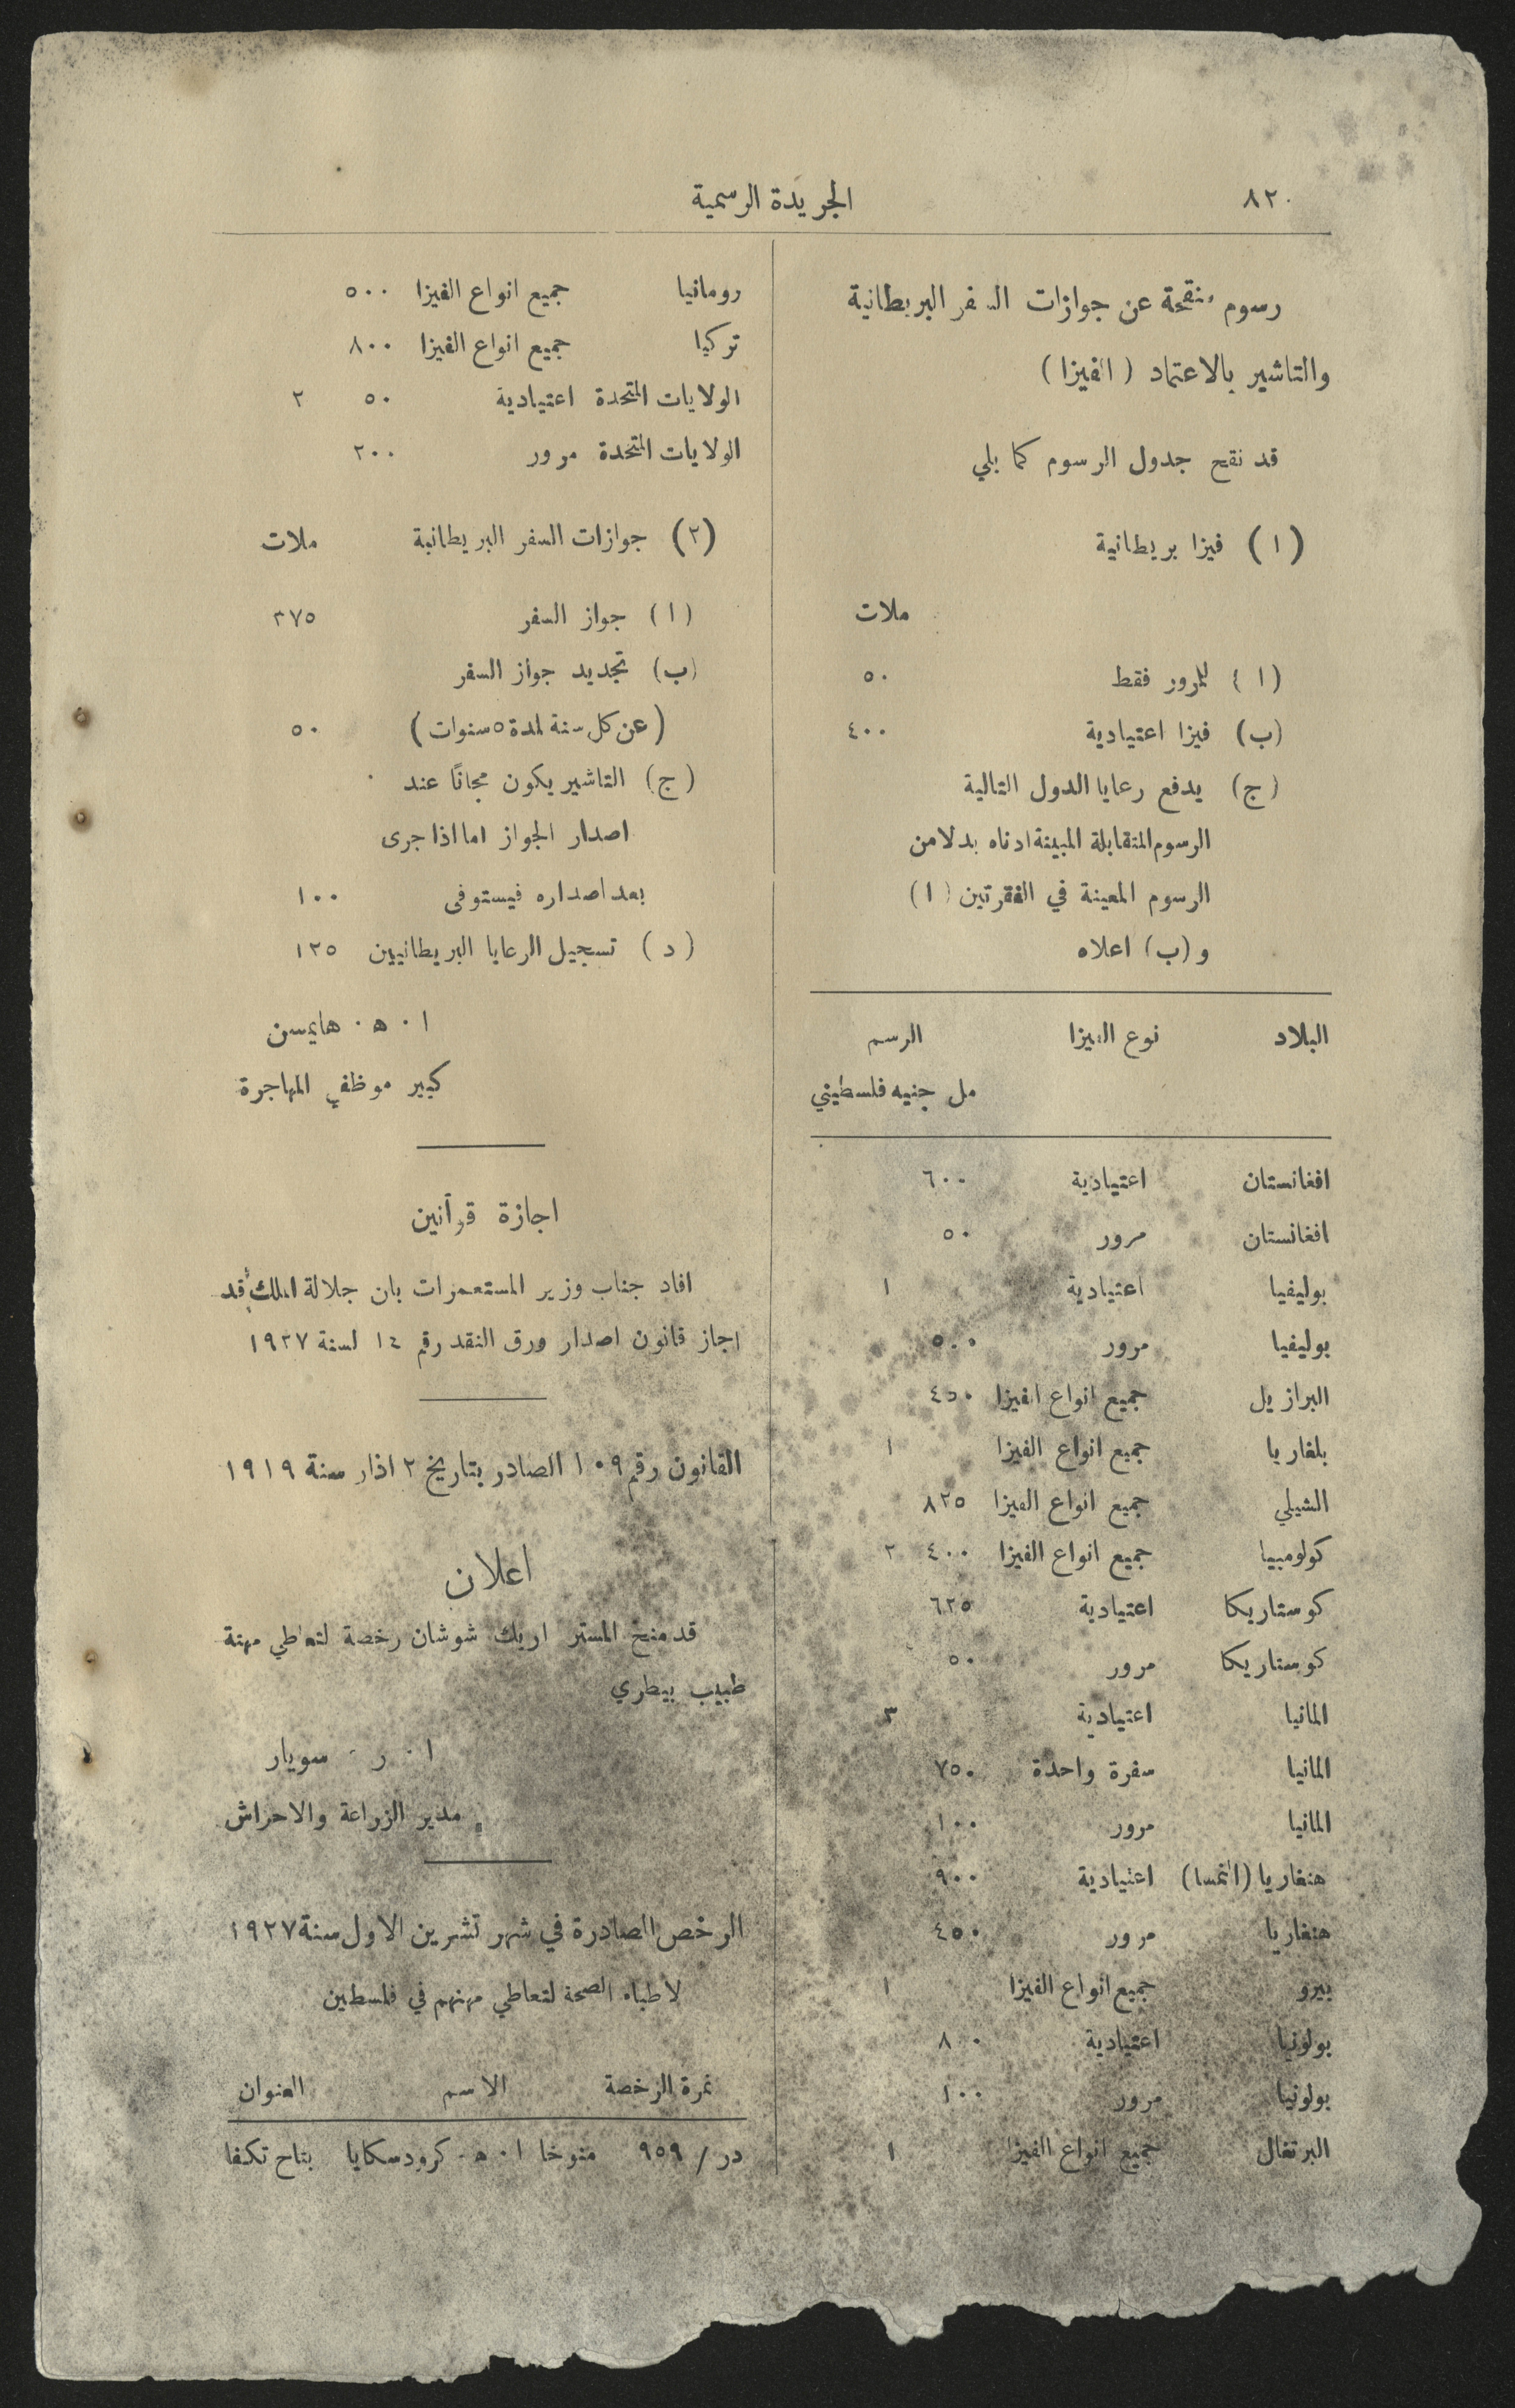 ٨٢٠
الجريدة الرسمية
رسوم منقحة عن جوازات السفر البريطانية
والتاشير بالاعتماد (الفيزا)
قد نقح جدول الرسوم كما يلي
(١) فيزا بريطانية
ملات
(ا) للمرور فقط ٥٠
(ب) فيزا اعتيادية ٤٠٠
(ج) يدفع رعايا الدول التالية
الرسوم المتقابلة المبينة ادناه بدلا من
الرسوم المعينة في الفقرتين (ا)
و (ب) اعلاه
البلاد نوع الفيزا الرسم
مل جنيه فلسطيني
افغانستان اعتيادية ٦٠٠
افغانستان مرور ٥٠
بوليفيا اعتيادية ١
بوليفيا مرور ٥٠٠
البرازيل جميع انواع الفيزا ٤٥٠
بلغاريا جميع انواع الفيزا ١
الشيلي جميع انواع الفيزا ٨٢٥
كولومبيا جميع انواع الفيزا ٤٠٠ ٢
كوستاريكا اعتيادية ٦٢٥
كوستاريكا مرور ٥٠
المانيا اعتيادية ٣
المانيا سفرة واحدة ٧٥٠
المانيا مرور ١٠٠
هنغاريا (النمسا) اعتيادية ٩٠٠
هنغاريا مرور ٤٥٠
بيرو جميع انواع الفيزا ١
بولونيا اعتيادية ٨٠٠
بولونيا مرور ١٠٠
البرتغال جميع انواع الفيزا ١
رومانيا جميع انواع الفيزا ٥٠٠
تركيا جميع انواع الفيزا ٨٠٠
الولايات المتحدة اعتيادية ٥٠ ٢
الولايات المتحدة مرور ٢٠٠
(٢) جوازات السفر البريطانية ملات
(ا) جواز السفر ٣٧٥
(ب) تجديد جواز السفر
(عن كل سنة لمدة ٥ سنوات) ٥٠
(ج) التاشير يكون مجانًا عند
اصدار الجواز اما اذا جرى
بعد اصداره فيستوفى ١٠٠
(د) تسجيل الرعايا البريطانيين ١٢٥
ا ٠ ه ٠ هايمسن
كبير موظفي المهاجرة
اجازة قوانين
افاد جناب وزير المستعمرات بان جلالة الملك قد
اجاز قانون اصدار ورق النقد رقم ١٤ لسنة ١٩٢٧
القانون رقم ١٠٩ الصادر بتاريخ ٢ اذار سنة ١٩١٩
اعلان
قد منح المستر اريك شوشان رخصة لتعاطي مهنة
طبيب بيطري
ا ٠ ر ٠ سويار
مدير الزراعة والاحراش
الرخص الصادرة في شهر تشرين الاول سنة ١٩٢٧
لاطباء الصحة لتعاطي مهنهم في فلسطين
نمرة الرخصة الاسم العنوان
در / ٩٥٩ منوخا ا ٠ ه ٠ كرودسكايا بتاح تكفا